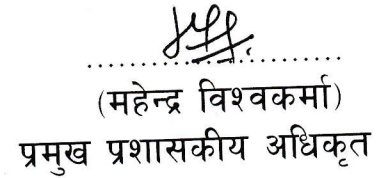 (महेन्द्र विश्वकर्मा)
प्रमुख प्रशासकीय अधिकृत